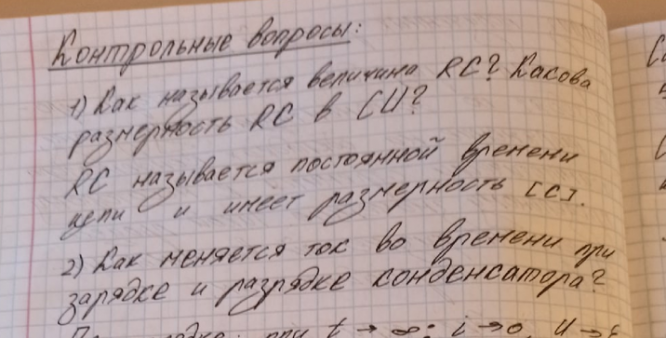 Контрольные вопросы:
1) Как называется величина RC? Какова
размерность RC в СИ?
RC называется постоянной времени
цепи и имеет размерность [с].
2) Как меняется ток во времени при
зарядке и разрядке конденсатора?
при t → ∞: i → 0, U → ε